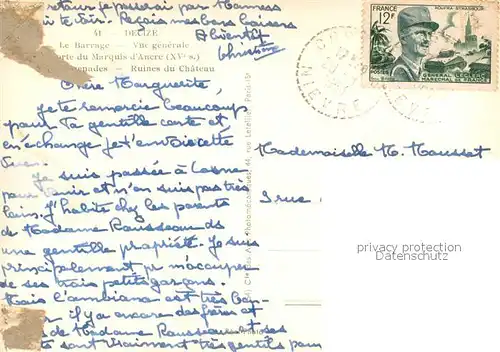 retour je passerai par Mamers
te voir. Reçois mes bons baisers
A bientôt
Christine
41 - DECIZE
Le Barrage - Vue générale
Porte du Marquis d'Ancre (XVe s.)
Promenades - Ruines du Château
Chère Marguerite,
je te remercie beaucoup
pour ta gentille carte et
en échange je t'envoie cette
vue.
Je suis passée à Cosne
pour venir et n'en suis pas très
loin. J'habite chez les parents
de Madame Rousseau ds
une gentille propriété. Je suis
principalement pr m'occuper
de ses trois petits garçons.
Mais l'ambiance est très
il y a encore des frères et
de Madame Rousseau et ses
sont vraiment très gentils pour
FRANCE
12F
KOUFRA STRASBOURG
POSTES
GENERAL LECLERC
MARECHAL DE FRANCE
NIEVRE
Mademoiselle M. Mousset
rue
privacy protection
Datenschutz